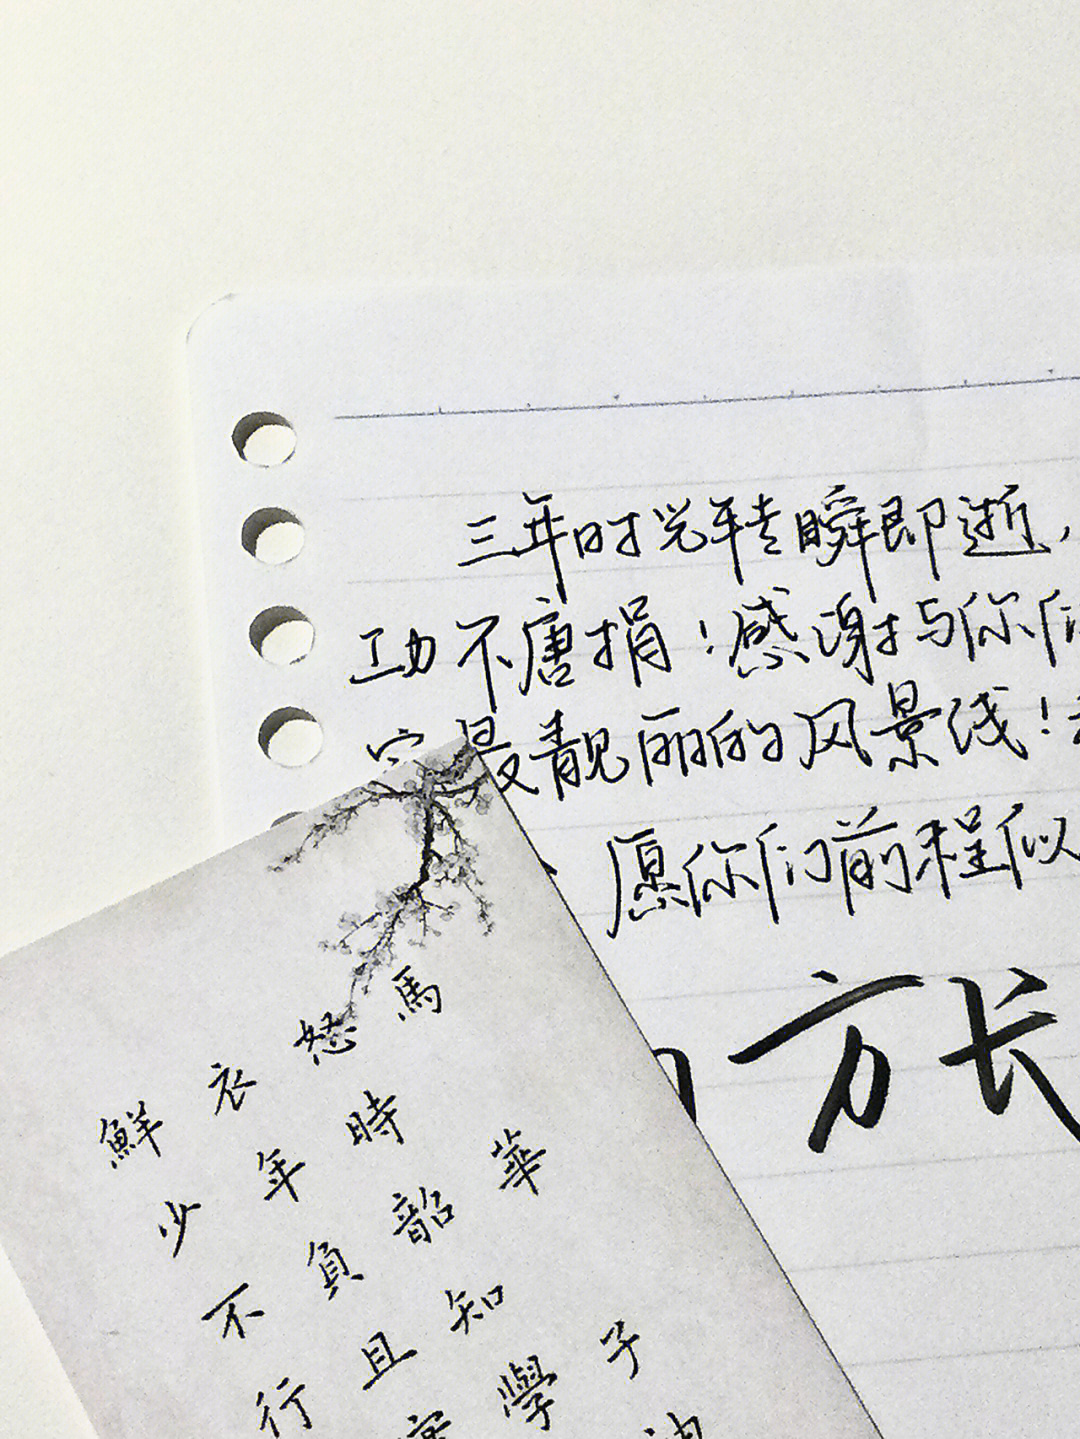 三年时光转瞬即逝，
功不唐捐！感谢与你们
最靓丽的风景线！
愿你们前程似
方长
鮮衣怒馬
少年時
不負韶華
行且知
學子